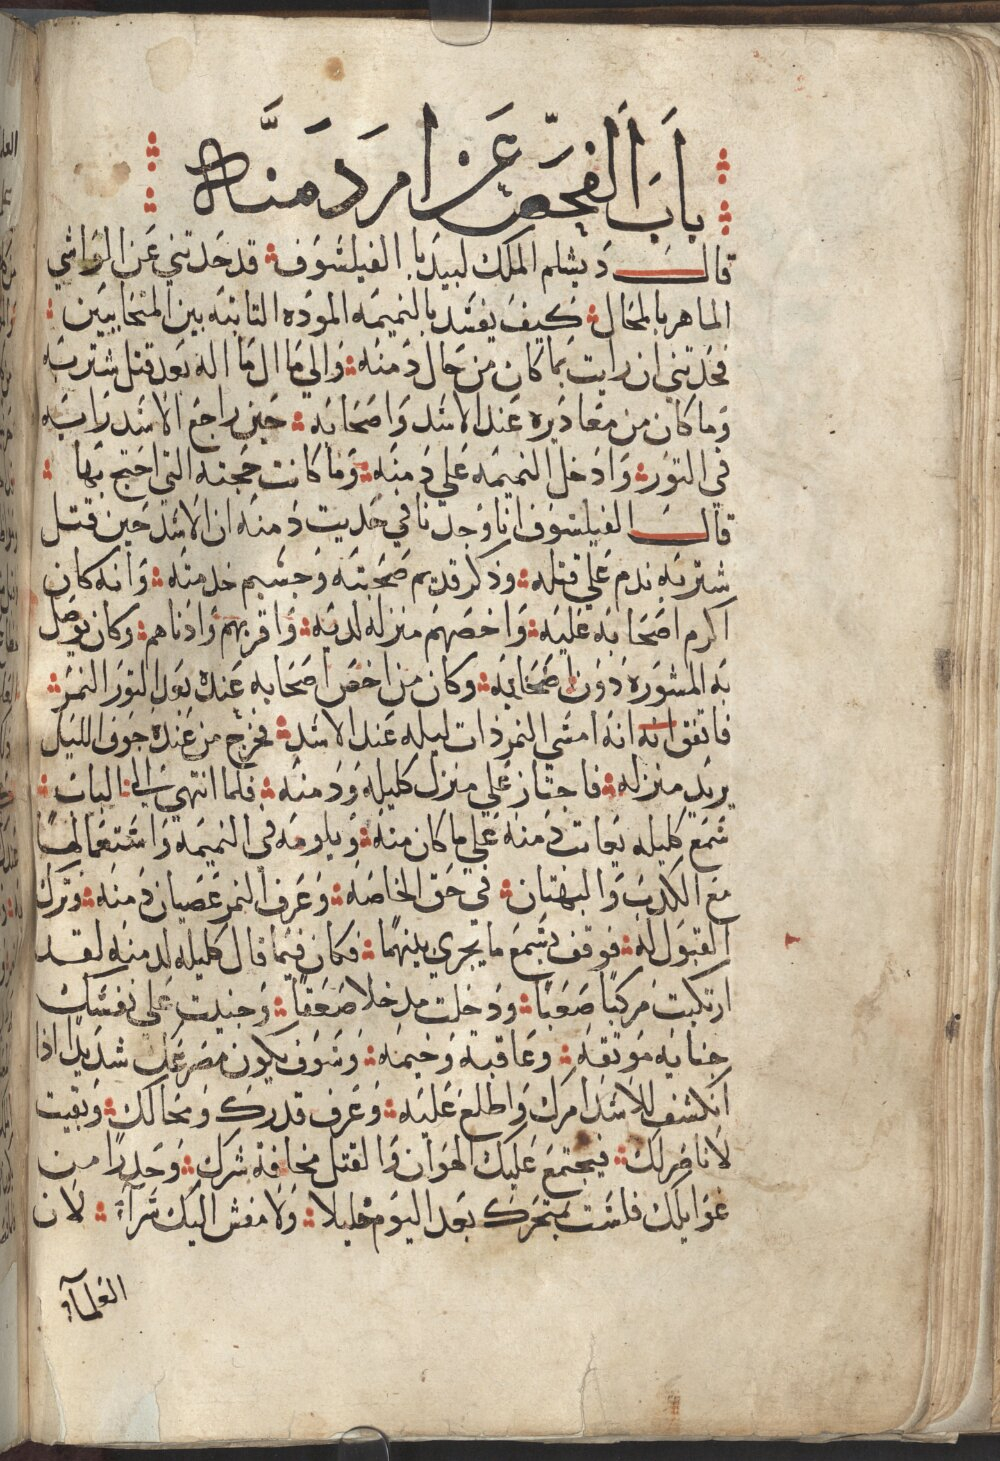 باب الفحص عن امر دمنه
قال دبشلم الملك لبيدبا الفيلسوف قد حدتني عن الواشي
الماهر بالمحال كيف يفسد بالنميمه الموده التابته بين المتحابين
فحدتني ان رايت بما كان من حال دمنه والي ما ال ماله بعد قتل شتربه
وما كان من معاديره عند الاسد واصحابه حين راجع الاسد رايه
في التور وادخل النميمه علي دمنه وما كانت حجته التي احتج بها
قال الفيلسوف انا وجدنا في حديت دمنه ان الاسد حين قتل
شتربه ندم علي قتله ودكر قديم صحبته وجسيم خدمته وانه كان
اكرم اصحابه عليه واخصهم منزله لديه واقربهم وادناهم وكان يوصل
به المشوره دون اصحابه وكان من اخص اصحابه عنده بعد التور النمر
فاتفق انه انه امسي النمر ذات ليله عند الاسد فخرج من عنده جوف الليل
يريد منزله فاجتاز علي منزل كليله ودمنه فلما انتهي الي الباب
سمع كليله يعاتب دمنه علي ما كان منه ويلومه في النميمه واستعمالها
مع الكدب والبهتان في حق الخاصه وعرف النمر عصيان دمنه وترك
القبول له فوقف يسمع ما يجري بينهما فكان فيما قال كليله لدمنه لقد
ارتكبت مركبا صعبا ودخلت مدخلا صعقا وجنيت علي نفسك
جنايه موتقه وعاقبه وخيمه وسوف يكون مصرعك شديدا اذا
انكشف للاسد امرك واطلع عليه وعرف قدرك ومحالك وبقيت
لا ناصر لك فيجتمع عليك الهوان والقتل مخافة شرك وحدرا من
غوايلك فلست بمتخدك بعد اليوم خليلا ولا مفش اليك سرآ لان
العلمآء